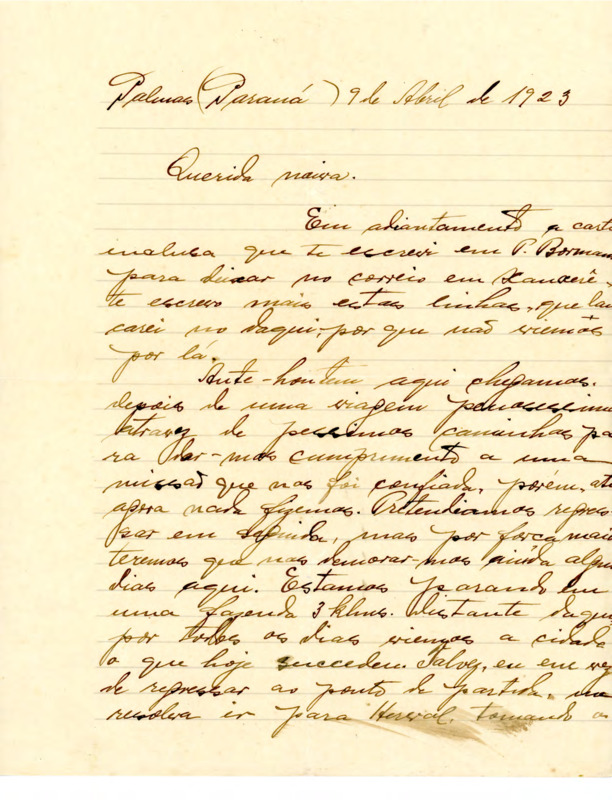 Palmas (Paraná) 9 de Abril de 1923
Querida noiva.
Em adiantamento a carta
inclusa que te escrevi em P. Borman
para deixar no correio em Xanxerê,
te escrevo mais estas linhas, que lan
carei no daqui, por que não viemos
por lá.
Ante-hontem aqui chegamos.
depois de uma viagem penosissima
atravez de pessimos caminhos pa
ra dar-mos cumprimento a uma
missão que nos foi confiada, porém, até
agora nada fizemos. Pretendiamos regres
sar em seguida, mas por força maio
teremos que nos demorar-mos ainda algun
dias aqui. Estamos parando em
uma fazenda 3 klms. distante daqui
por todos os dias viemos a cidade
o que hoje succedeu. Talvez, eu em vez
de regressar ao ponto de partida, me
resolva ir para Herval, tomando o